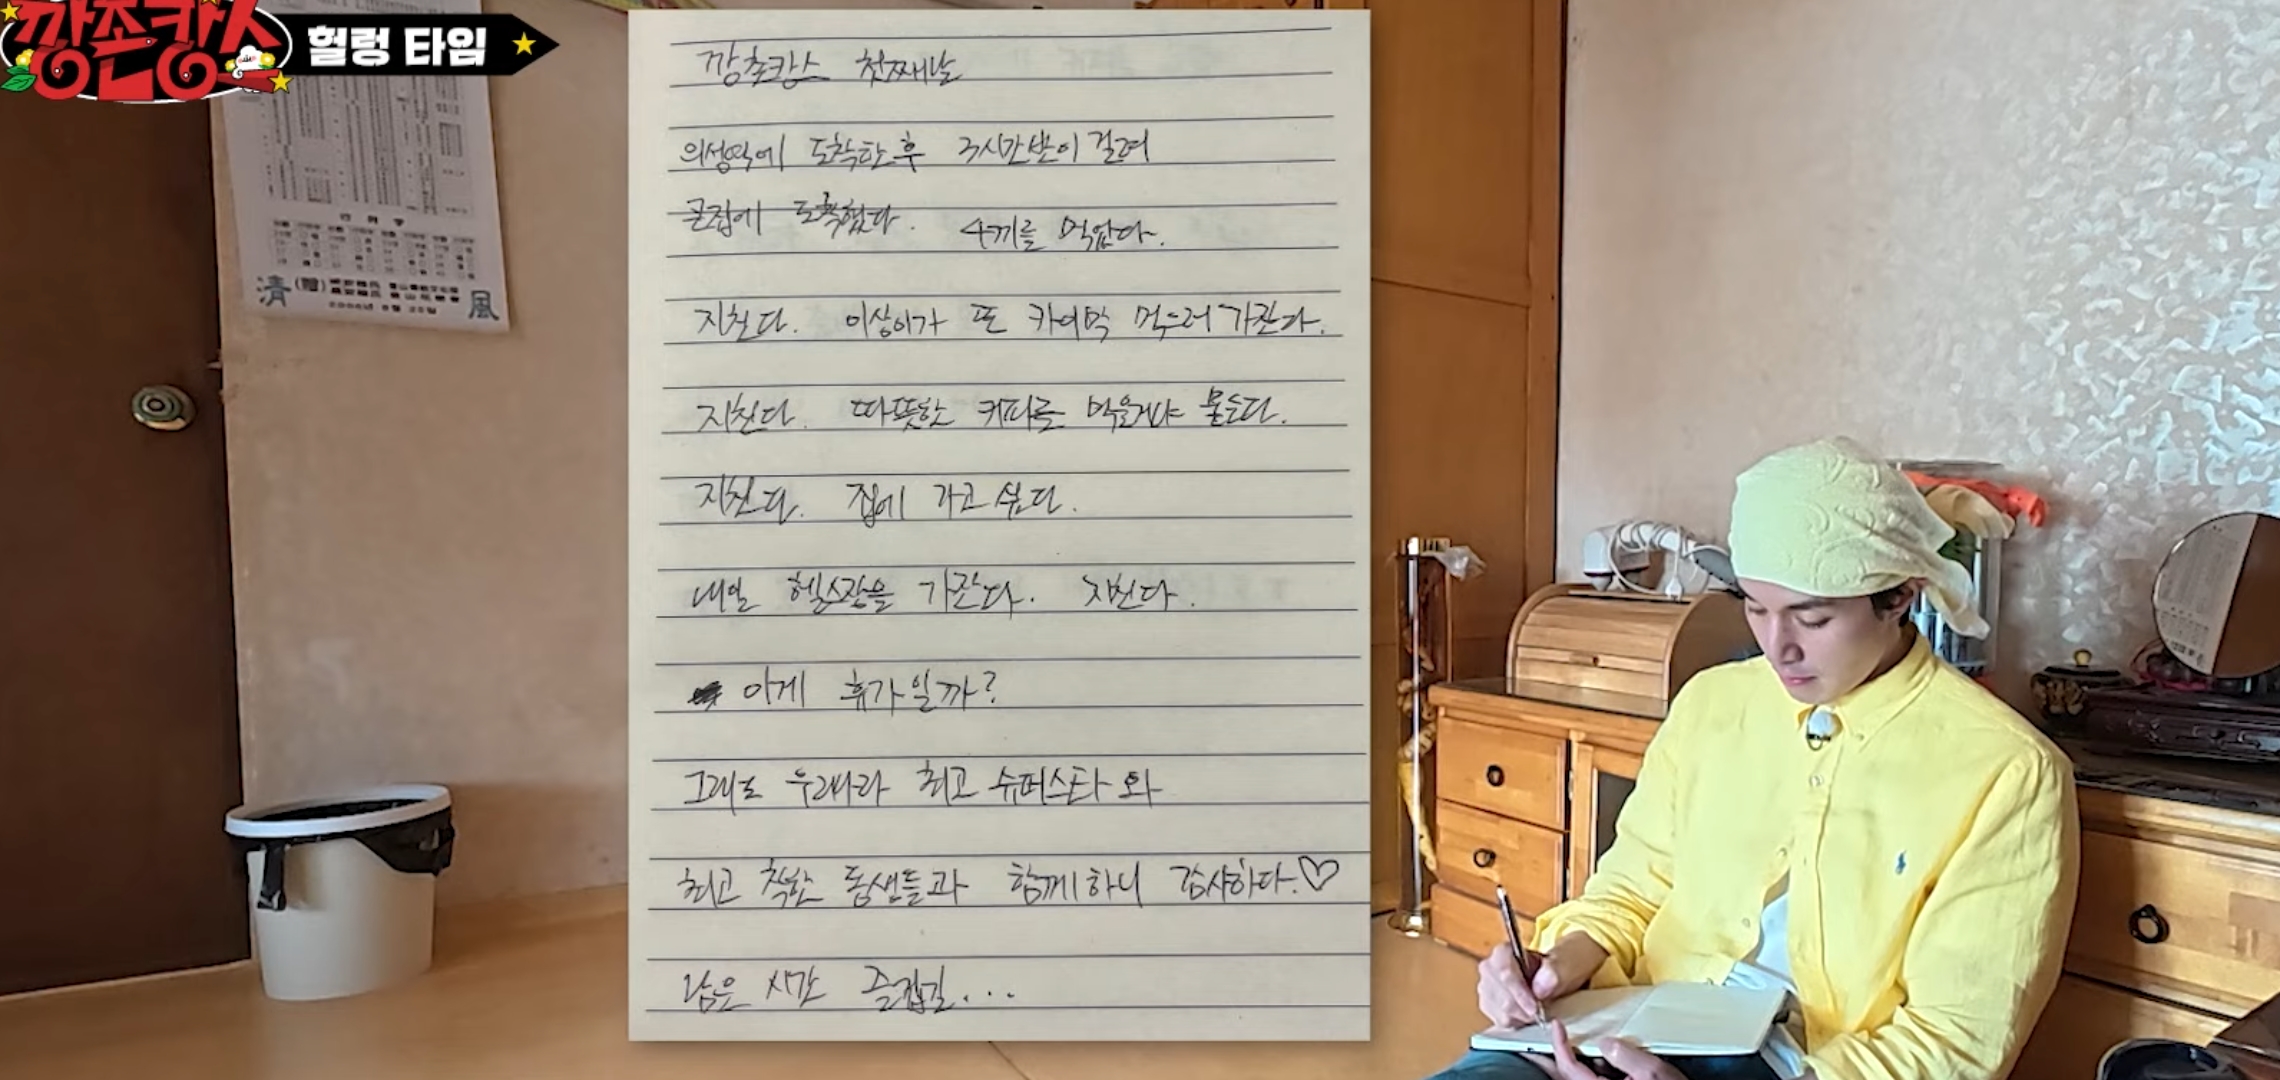 깡촌캉스
헐렁 타임
깡촌캉스 첫째날
의성역에 도착한 후 3시간반이 걸려
큰집에 도착했다. 4끼를 먹었다.
지친다. 이상이가 또 카이막 먹으러 가잔다.
지친다. 따뜻한 커피를 먹을거냐 묻는다.
지친다. 집에 가고 싶다.
내일 헬스장을 가잔다. 지친다.
이게 휴가일까?
그래도 우리나라 최고 슈퍼스타와
최고 착한 동생들과 함께하니 감사하다.♡
남은 시간 즐겁길...
清 風